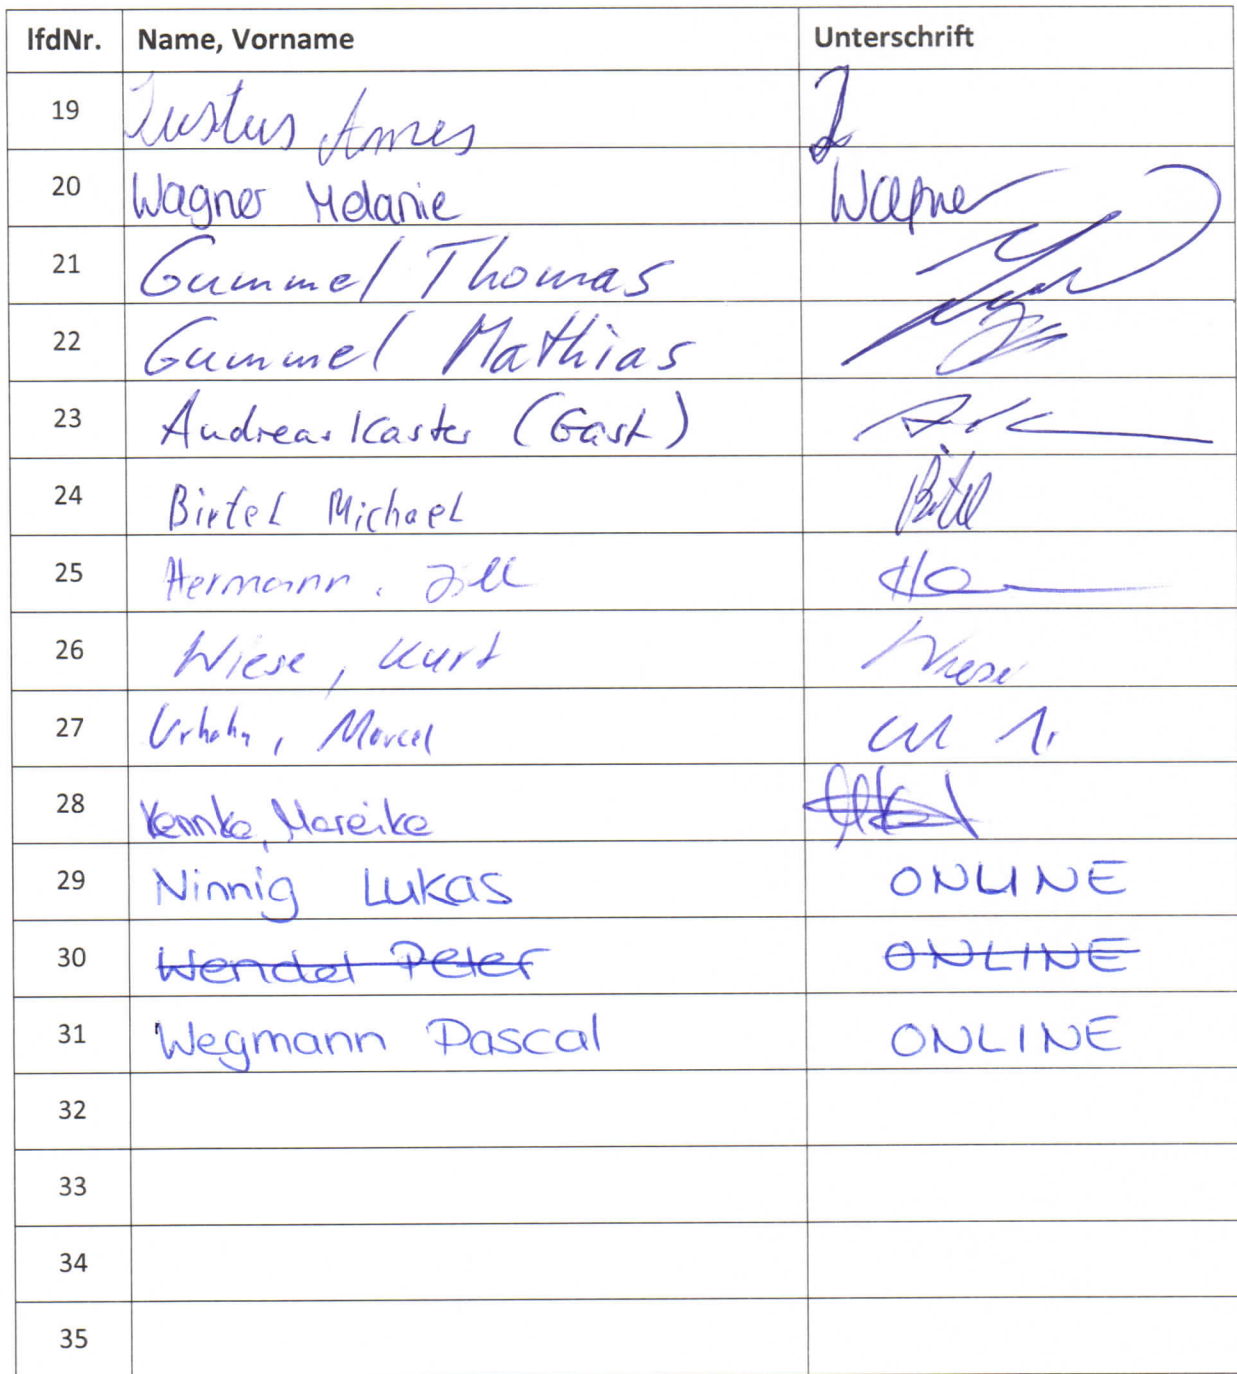 lfdNr. Name, Vorname Unterschrift
19 Justus Ames
20 Wagner Melanie Wagner
21 Gummel Thomas
22 Gummel Mathias
23 Andreas Kaster (Gast)
24 Birtel Michael Birtel
25 Hermann, Jill
26 Wiese, Kurt Wiese
27 Urhahn, Marcel
28 Kennke, Mareike
29 Ninnig Lukas ONLINE
30 Wendel Peter ONLINE
31 Wegmann Pascal ONLINE
32
33
34
35